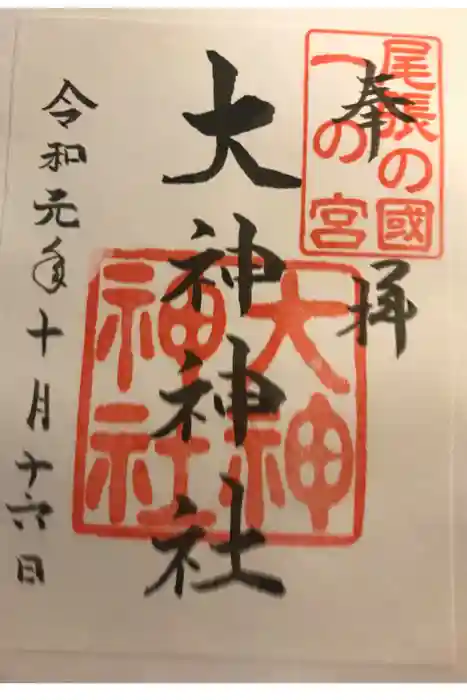 奉拝
尾張の國
一の宮
大神神社
大神
神社
令和元年十月十六日